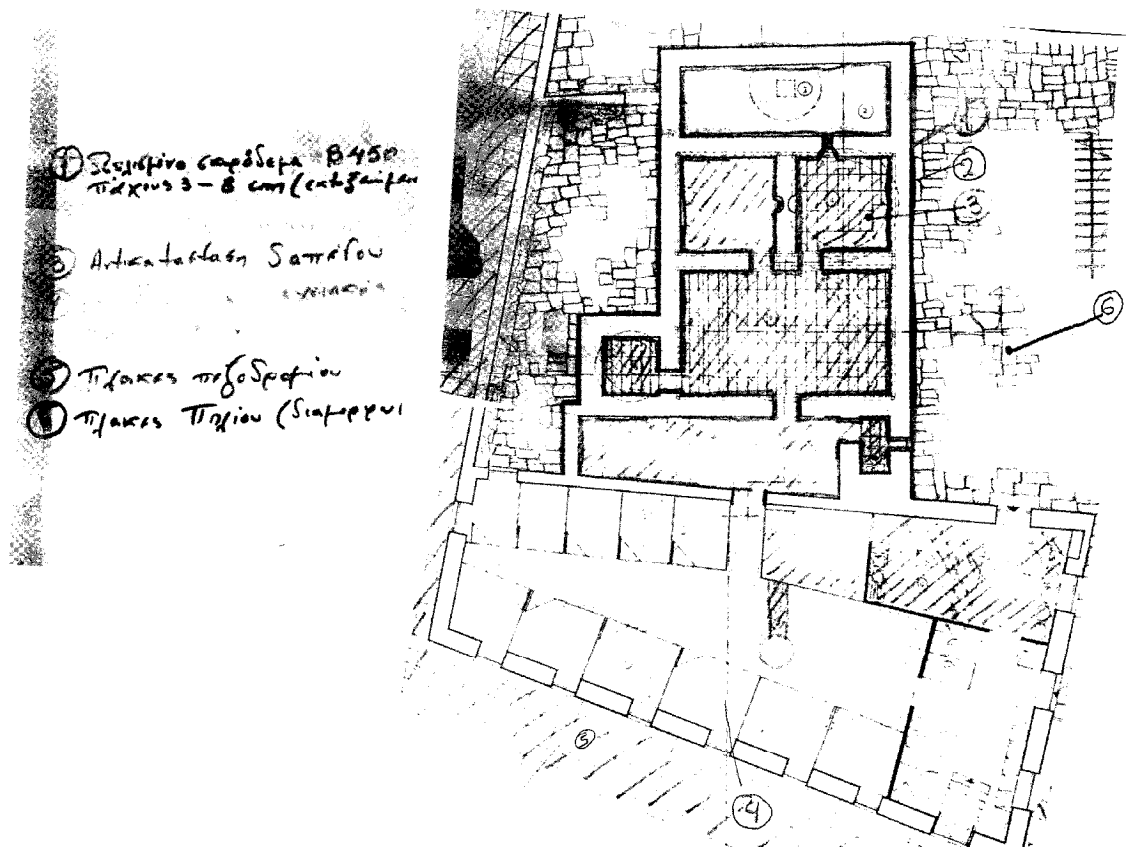 ① Οπλισμένο σκυρόδεμα Β450
πάχους 3-8 cm (εκτοξευόμεν
3 Αντικατάσταση δαπέδου
5 Πλάκες πεζοδρομίου
6 Πλάκες Πηλίου (διαμορφωι
①
②
2
3
6
5
4